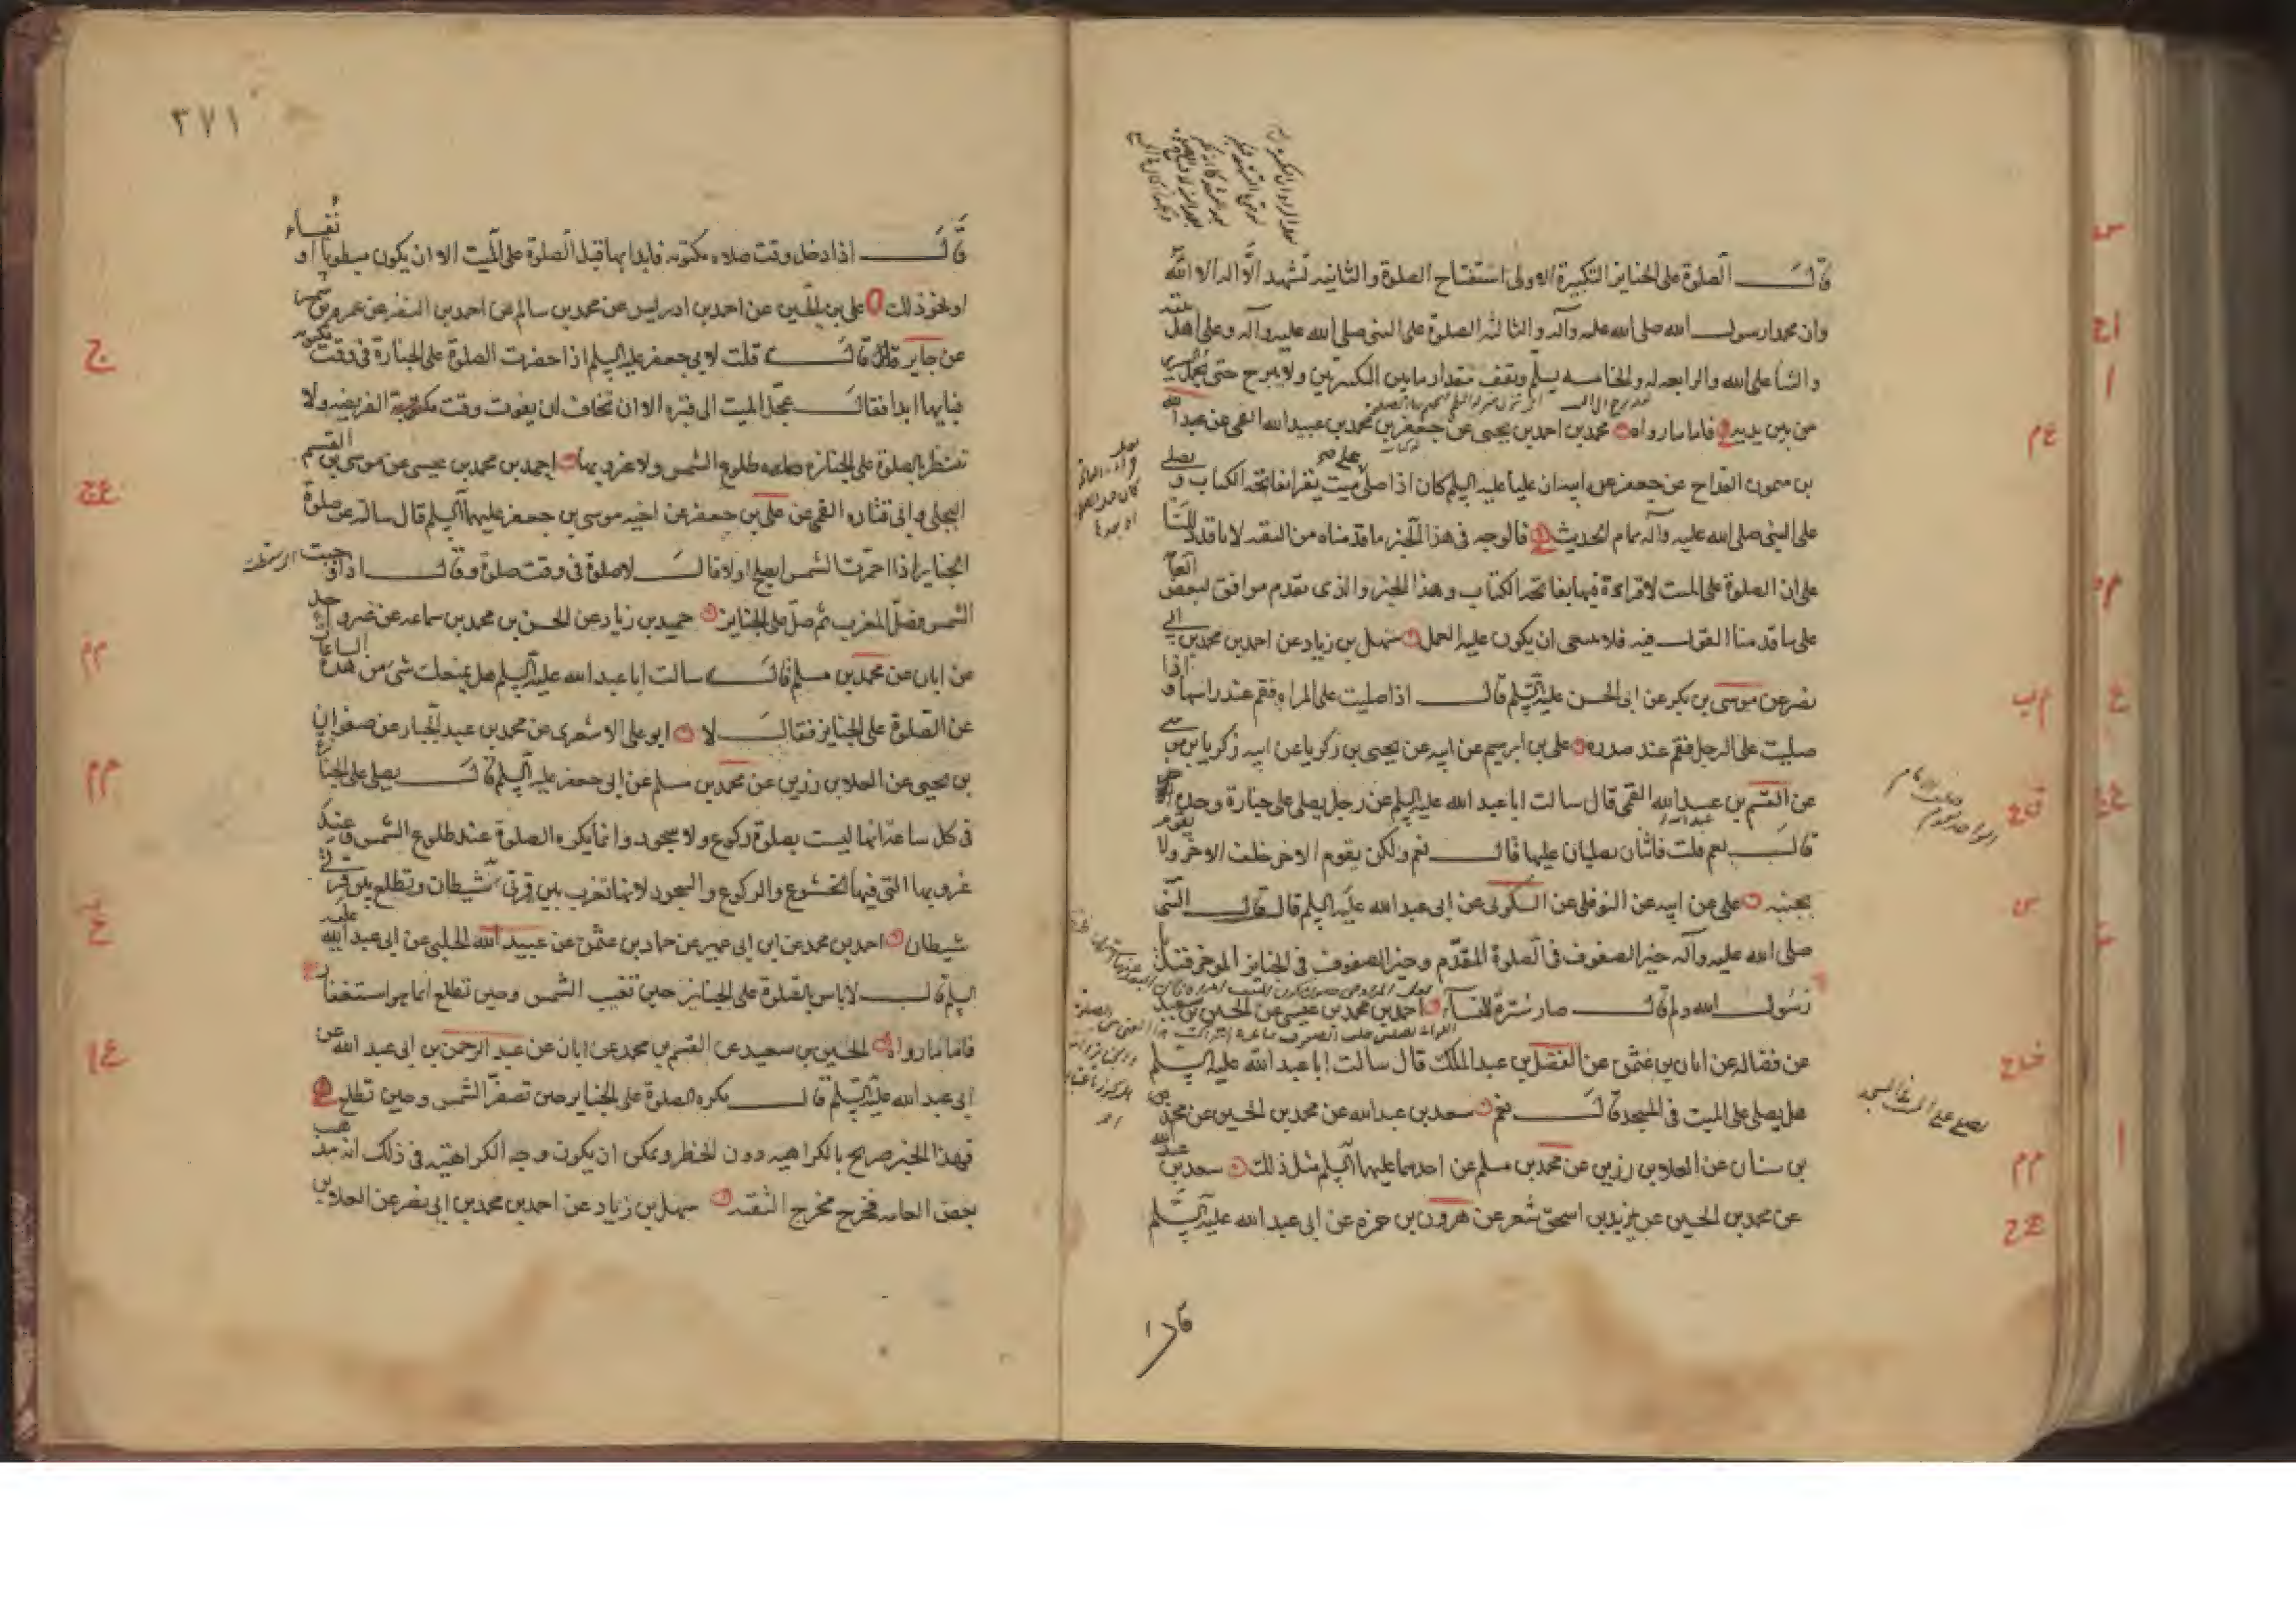 قال الصلوة على الجنايز التكبيرة الاولى استفتاح الصلوة والثانيه تشهد ان لا اله الا الله
وان محمدا رسول الله صلى الله عليه وآله والثالثه الصلوة على النبى صلى الله عليه وآله وعلى اهل بيته
والثنا على الله والرابعه له والخامسه يسلم ويقف مقدار ما بين التكبيرتين ولا يبرح حتى يحمل السرير
من بين يديه فاما ما رواه محمد بن احمد بن يحيى عن جعفر بن محمد بن عبيد الله القمى عن عبد الله
بن ميمون القداح عن جعفر عن ابيه ان عليا عليه السلم كان اذا صلى على ميت يقرا بفاتحه الكتاب و يصلى
على النبى صلى الله عليه وآله تمام الحديث فالوجه فى هذا الخبر ما قدمناه من التقيه لانا قد بينا
على ان الصلوة على الميت لا قراءة فيها بفاتحه الكتاب وهذا الخبر والذى تقدم موافق لبعض العامه
على ما قدمنا القول فيه فلا ينبغى ان يكون عليه العمل سهل بن زياد عن احمد بن محمد بن ابى
نصر عن موسى بن بكر عن ابى الحسن عليه السلم قال اذا صليت على المراه فقم عند راسها و اذا
صليت على الرجل فقم عند صدره على بن ابرهيم عن ابيه عن يحيى بن زكريا عن ابيه زكريا بن موسى
عن القسم بن عبيد الله القمى قال سالت ابا عبد الله عليه السلم عن رجل يصلى على جنازة وحده
قال نعم قلت فاثنان يصليان عليها قال نعم ولكن يقوم الاخر خلف الاخر ولا يقوم
بجنبه على عن ابيه عن النوفلى عن السكونى عن ابى عبد الله عليه السلم قال قال النبى
صلى الله عليه وآله خير الصفوف فى الصلوة المقدم وخير الصفوف فى الجنايز الموخر فقيل يا
رسول الله ولم قال صار سترة للنسآء احمد بن محمد بن عيسى عن الحسين بن سعيد
عن فضاله عن ابان بن عثمن عن الفضل بن عبد الملك قال سالت ابا عبد الله عليه السلم
هل يصلى على الميت فى المسجد قال نعم سعد بن عبد الله عن محمد بن الحسين عن محمد
بن سنان عن العلا بن رزين عن محمد بن مسلم عن احدهما عليهما السلم مثل ذلك سعد بن عبد الله
عن محمد بن الحسين عن يزيد بن اسحق شعر عن هرون بن حمزه عن ابى عبد الله عليه السلم
خلف الامام
يصلى على الميت فى المسجد
قال ا
٣٧١
قال اذا دخل وقت صلاه مكتوبه فابدا بها قبل الصلوة على الميت الا ان يكون مبطونا او نفساء
او نحو ذلك على بن الحسين عن احمد بن ادريس عن محمد بن سالم عن احمد بن النضر عن عمرو بن شمر
عن جابر قال قلت لابى جعفر عليه السلم اذا حضرت الصلوة على الجنازة فى وقت مكتوبه
فبايها ابدا فقال عجل الميت الى قبره الا ان تخاف ان يفوت وقت الفريضه ولا
تنتظر بالصلوة على الجنازه طلوع الشمس ولا غروبها احمد بن محمد بن عيسى عن موسى بن القسم
البجلى وابى قتاده القمى عن على بن جعفر عن اخيه موسى بن جعفر عليهما السلم قال سالته عن صلوة
الجنايز اذا احمرت الشمس ايصلح اولا قال لا صلوة فى وقت صلوة وقال اذا وجبت
الشمس فصل المغرب ثم صل على الجنايز حميد بن زياد عن الحسن بن محمد بن سماعه عن غير واحد
عن ابان عن محمد بن مسلم قال سالت ابا عبد الله عليه السلم هل يمنعك شى من هذه الساعات
عن الصلوة على الجنايز فقال لا ابو على الاشعرى عن محمد بن عبد الجبار عن صفوان
بن يحيى عن العلا بن رزين عن محمد بن مسلم عن ابى جعفر عليه السلم قال يصلى على الجنازة
فى كل ساعة انها ليست بصلوة ركوع ولا سجود وانما يكره الصلوة عند طلوع الشمس وعند
غروبها التى فيها الخشوع والركوع والسجود لانها تغرب بين قرنى شيطان وتطلع بين قرنى
شيطان احمد بن محمد عن ابن ابى عمير عن حماد بن عثمن عن عبيد الله الحلبى عن ابى عبد الله عليه
السلم قال لا باس بالصلوة على الجنايز حين تغيب الشمس وحين تطلع انما هو استغفار
فاما ما رواه الحسين بن سعيد عن القسم بن محمد عن ابان عن عبد الرحمن بن ابى عبد الله عن
ابى عبد الله عليه السلم قال يكره الصلوة على الجنايز حين تصفر الشمس وحين تطلع
فهذا الخبر صريح بالكراهيه دون الحظر ويمكن ان يكون وجه الكراهيه فى ذلك انه مذهب
بعض العامه فخرج مخرج التقيه سهل بن زياد عن احمد بن محمد بن ابى نصر عن العلا بن